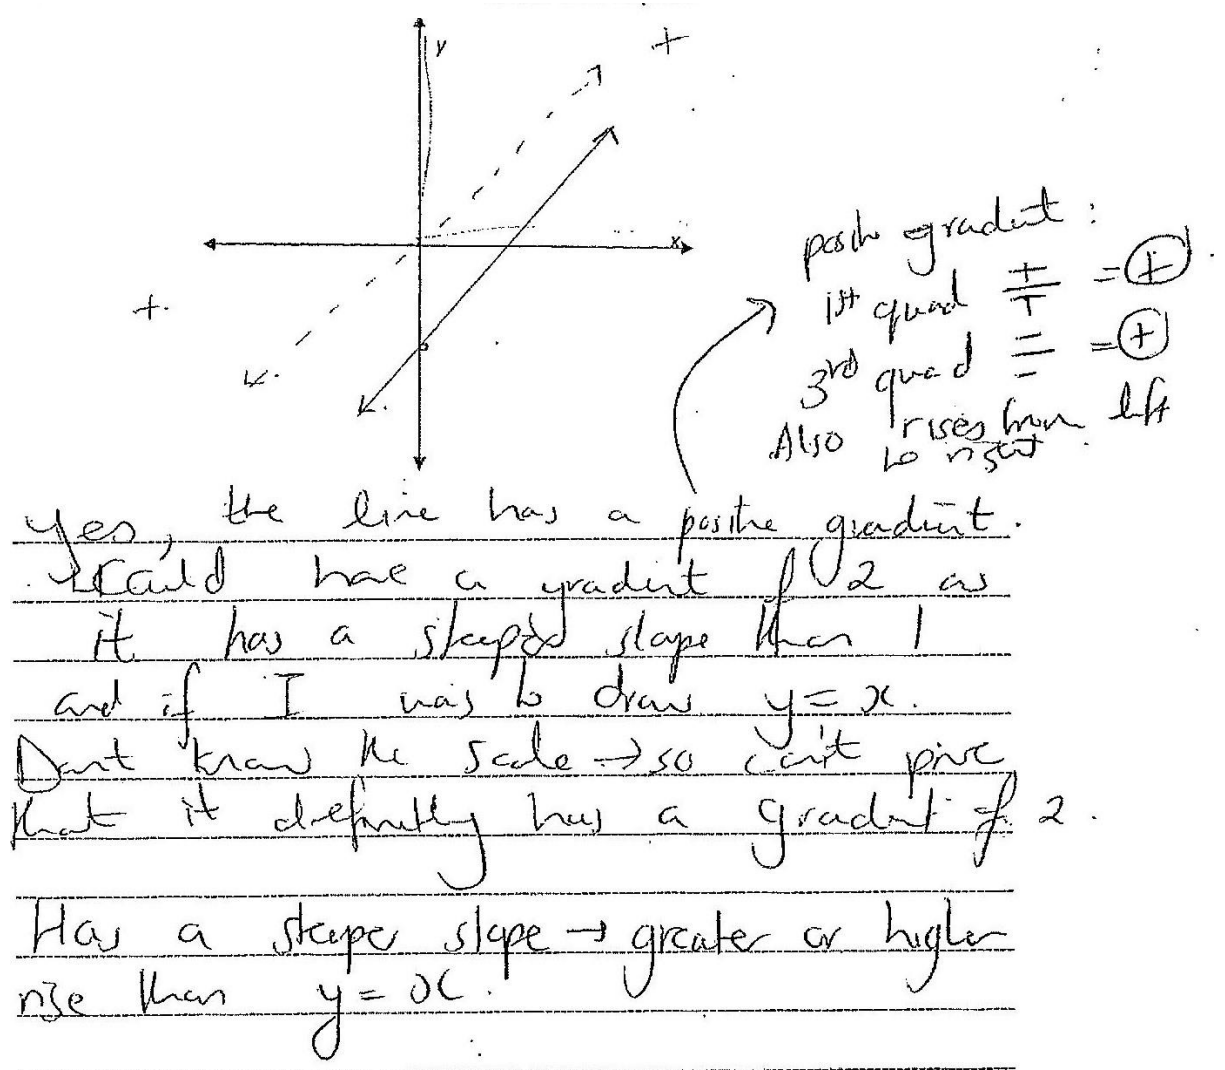 y
+
x
+.
positive gradient :
1st quad + / + = +
3rd quad - / - = +
Also rises from left
to right
Yes, the line has a positive gradient.
Could have a gradient of 2 as
it has a steeper slope than 1
and if I was to draw y = x.
Don't know the scale → so can't prove
that it definitly has a gradient of 2.
Has a steeper slope → greater or higher
rise than y = x.